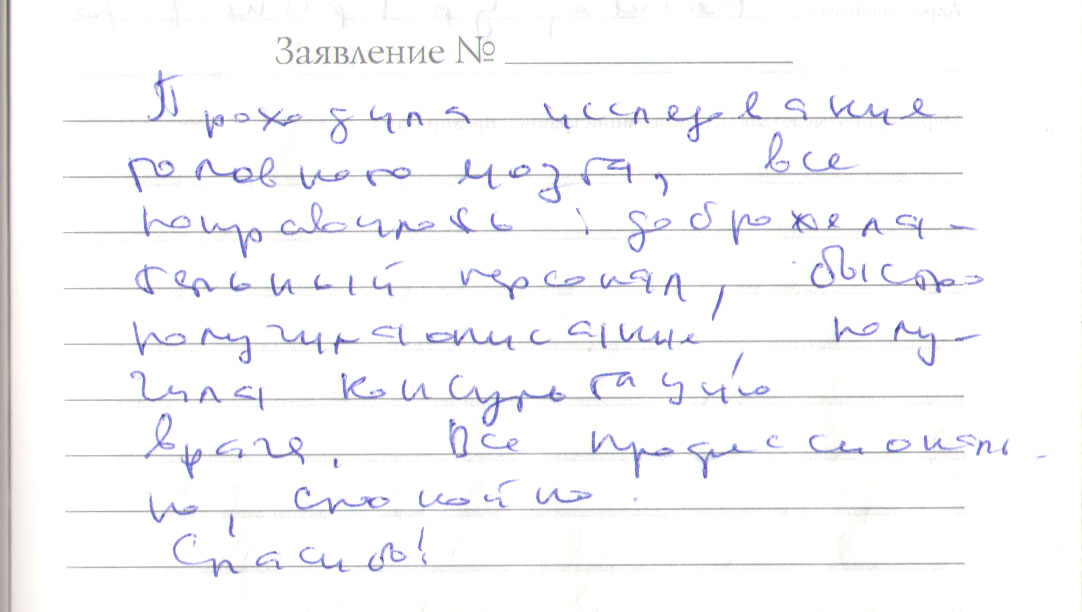 Заявление №
Проходила исследование
головного мозга, все
понравилось, доброжела-
тельный персонал, быстро
получила описание, полу-
чила консультацию
врача. Все профессиональ-
но, спокойно.
Спасибо!